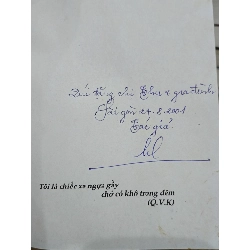 Quí tặng chị Thu & gia đình
Sài gòn 27.8.2001
Tác giả
Tôi là chiếc xe ngựa gầy
chở cỏ khô trong đêm
(Q.V.K)